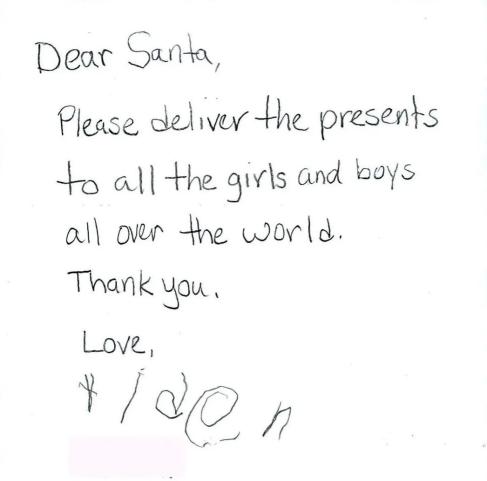 Dear Santa,
Please deliver the presents
to all the girls and boys
all over the world.
Thank you.
Love,